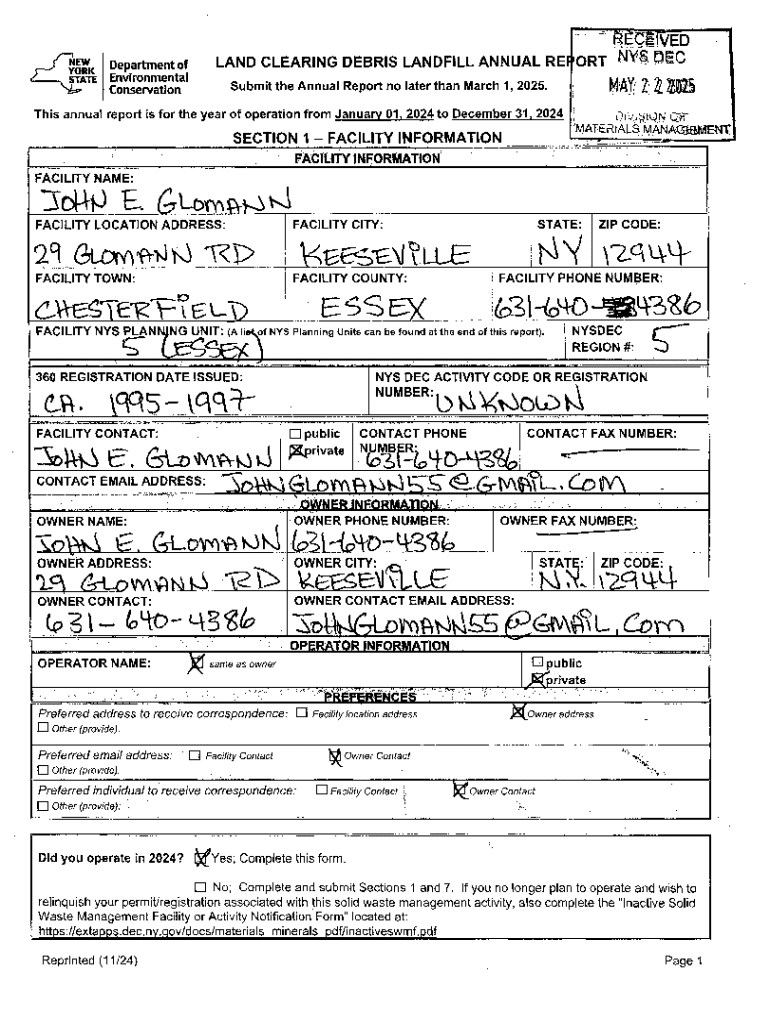 RECEIVED
NYS DEC
MAY 22 2025
DIVISION OF
MATERIALS MANAGEMENT
NEW YORK STATE
Department of Environmental Conservation
LAND CLEARING DEBRIS LANDFILL ANNUAL REPORT
Submit the Annual Report no later than March 1, 2025.
This annual report is for the year of operation from January 01, 2024 to December 31, 2024
SECTION 1 – FACILITY INFORMATION
FACILITY INFORMATION
FACILITY NAME:
JOHN E. GLOMANN
FACILITY LOCATION ADDRESS: FACILITY CITY: STATE: ZIP CODE:
29 GLOMANN RD KEESEVILLE NY 12944
FACILITY TOWN: FACILITY COUNTY: FACILITY PHONE NUMBER:
CHESTERFIELD ESSEX 631-640-4386
FACILITY NYS PLANNING UNIT: (A list of NYS Planning Units can be found at the end of this report). NYSDEC
5 (ESSEX) REGION #: 5
360 REGISTRATION DATE ISSUED: NYS DEC ACTIVITY CODE OR REGISTRATION
CA. 1995-1997 NUMBER: UNKNOWN
FACILITY CONTACT: ☐ public CONTACT PHONE CONTACT FAX NUMBER:
JOHN E. GLOMANN ☒ private NUMBER: 631-640-4386
CONTACT EMAIL ADDRESS: JOHNGLOMANN55@GMAIL.COM
OWNER INFORMATION
OWNER NAME: OWNER PHONE NUMBER: OWNER FAX NUMBER:
JOHN E. GLOMANN 631-640-4386
OWNER ADDRESS: OWNER CITY: STATE: ZIP CODE:
29 GLOMANN RD KEESEVILLE N.Y. 12944
OWNER CONTACT: OWNER CONTACT EMAIL ADDRESS:
631-640-4386 JOHNGLOMANN55@GMAIL.COM
OPERATOR INFORMATION
OPERATOR NAME: ☒ same as owner ☐ public
☒ private
PREFERENCES
Preferred address to receive correspondence: ☐ Facility location address ☒ Owner address
☐ Other (provide):
Preferred email address: ☐ Facility Contact ☒ Owner Contact
☐ Other (provide):
Preferred individual to receive correspondence: ☐ Facility Contact ☒ Owner Contact
☐ Other (provide):
Did you operate in 2024? ☒ Yes; Complete this form.
☐ No; Complete and submit Sections 1 and 7. If you no longer plan to operate and wish to
relinquish your permit/registration associated with this solid waste management activity, also complete the "Inactive Solid
Waste Management Facility or Activity Notification Form" located at:
https://extapps.dec.ny.gov/docs/materials_minerals_pdf/inactiveswmf.pdf
Reprinted (11/24) Page 1